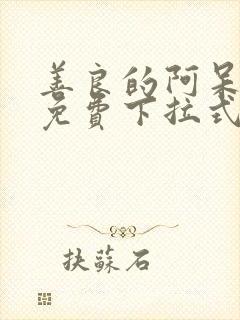 善良的阿呆
免費下拉式
抉蘇石